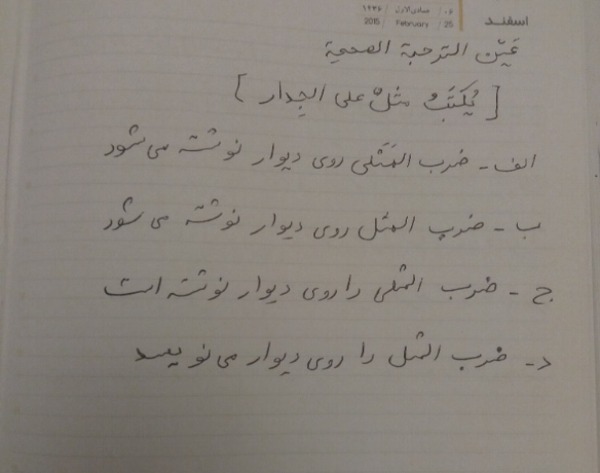 ١٤٣٦ جمادی‌الاول ٠٦
اسفند
2015 February 25
عَيّن الترجمة الصحيحة
[ يُكتَبُ مثلٌ على الجِدار ]
الف - ضرب المَثَلی روی دیوار نوشته می‌شود
ب - ضرب المثل روی دیوار نوشته می‌شود
ج - ضرب المثلی را روی دیوار نوشته است
د - ضرب المثل را روی دیوار می‌نویسد